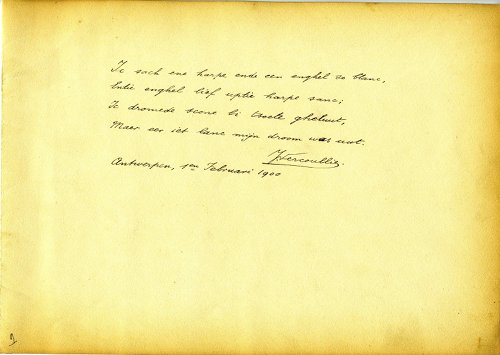 Ic sach ene harpe ende een enghel so blanc,
Entie enghel lief uptie harpe sanc;
Ic dromede scone bi tsoete gheluut,
Maer eer iet lanc mijn droom was uut.
J Vercoullie
Antwerpen, 1en Februari 1900